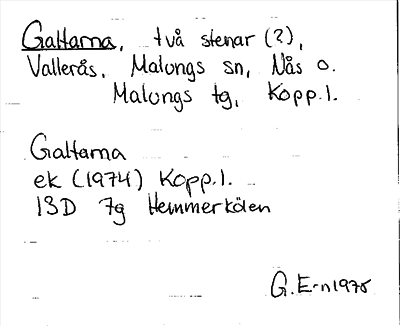 Galtarna, två stenar (?),
Vallerås, Malungs sn, Nås o.
Malungs tg, Kopp.l.
Galtarna
ek (1974) Kopp.l.
13D 7g Hemmerkölen
G.E-n 1975